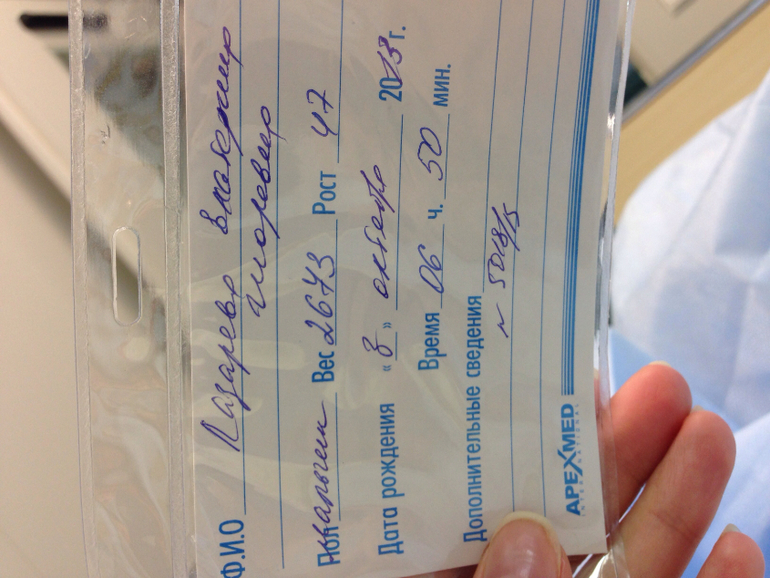 Ф.И.О Лазарева Владимир
Игоревич
Пол мальчик Вес 2673 Рост 47
Дата рождения « 3 » октября 2013 г.
Время 06 ч. 50 мин.
Дополнительные сведения
N 5018/5
APEXMED
INTERNATIONAL